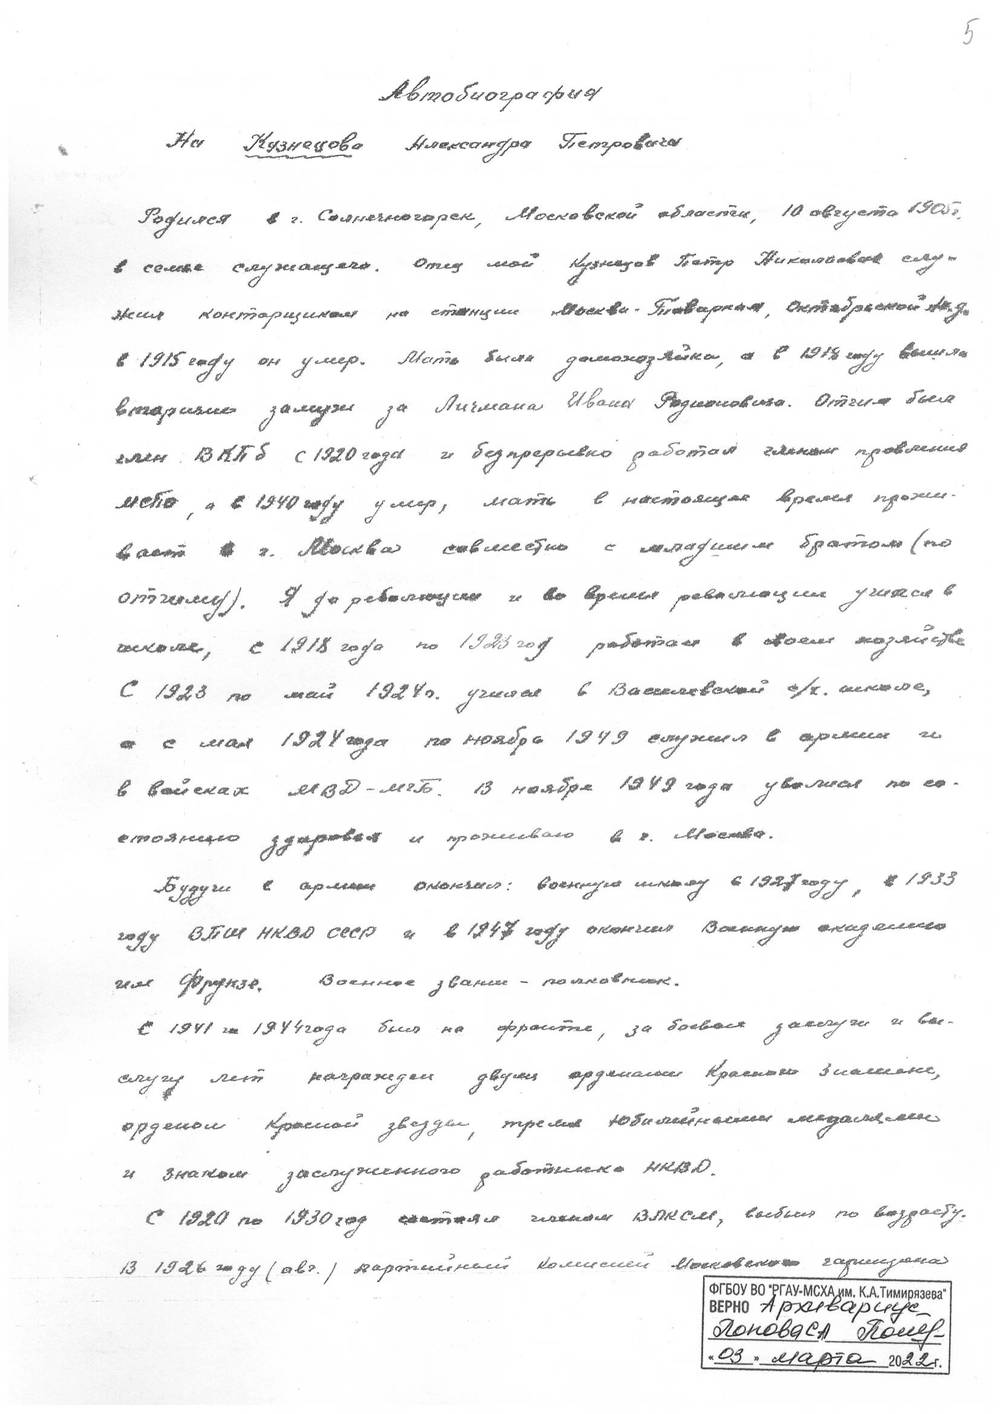 5
Автобиография
На Кузнецова Александра Петровича
Родился в г. Солнечногорск, Московской области, 10 августа 1905г.
в семье служащего. Отец мой Кузнецов Петр Николаевич слу-
жил конторщиком на станции Москва-Товарная, Октябрьской ж.д.
в 1915 году он умер. Мать была домохозяйка, а в 1918 году вышла
вторично замуж за Личмана Ивана Родионовича. Отчим был
член ВКПб с 1920 года и безпрерывно работал членом правления
МСПО, а в 1940 году умер, мать в настоящее время прожи-
вает в г. Москва совместно с младшим братом (по
отчиму). Я до революции и во время революции учился в
школе, с 1918 года по 1923 год работал в своем хозяйстве
С 1923 по май 1924г. учился в Василевской с/х. школе,
а с мая 1924 года по ноябрь 1949 служил в армии и
в войсках МВД-МГБ. В ноябре 1949 года уволился по со-
стоянию здоровья и проживаю в г. Москва.
Будучи в армии окончил: военную школу в 1927 году, в 1933
году ВПШ НКВД СССР и в 1947 году окончил Военную академию
им Фрунзе. Военное звание - полковник.
С 1941 по 1944 года был на фронте, за боевые заслуги и вы-
слугу лет награжден двумя орденами Красного Знамени,
орденом Красной звезды, тремя юбилейными медалями
и знаком заслуженного работника НКВД.
С 1920 по 1930 год состоял членом ВЛКСМ, выбыл по возрасту.
В 1926 году (авг.) партийный комиссией Московского гарнизона
ФГБОУ ВО "РГАУ-МСХА им. К.А.Тимирязева"
ВЕРНО Архивариус
Попова СА
«03» марта 2022г.